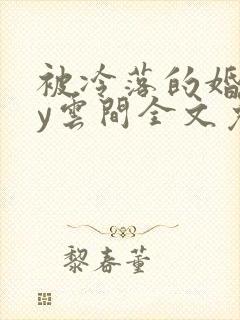 被冷落的婚
y雲間全文
黎春董